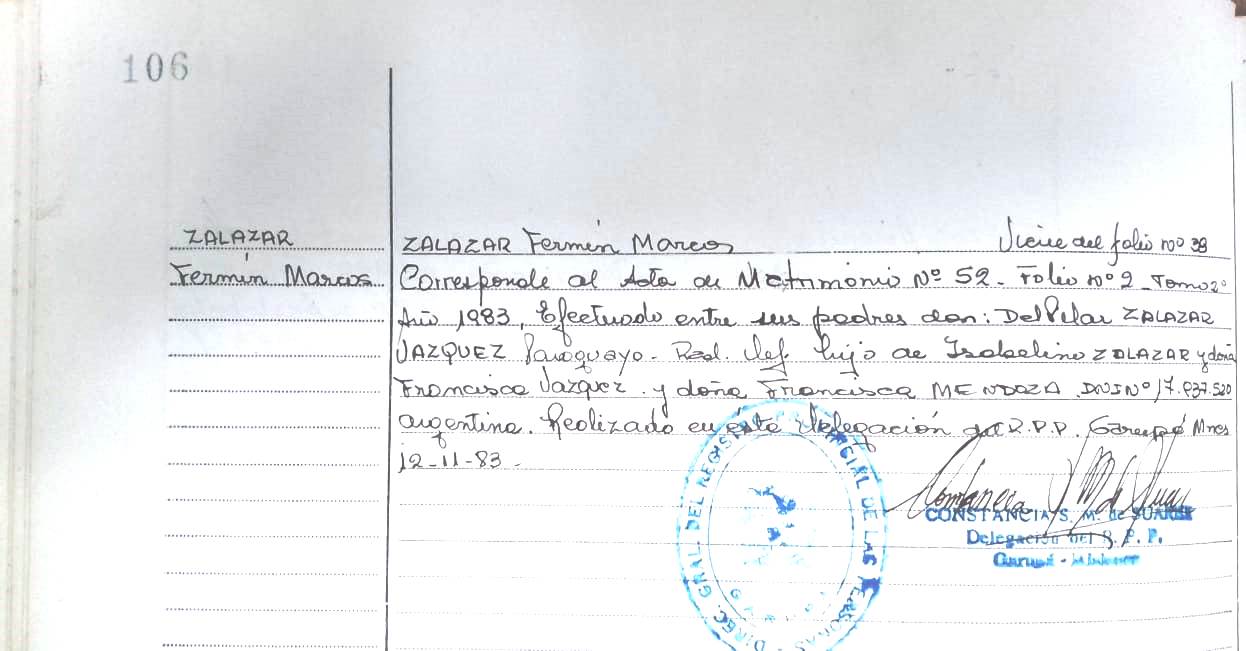 106
ZALAZAR
Fermín Marcos
ZALAZAR Fermín Marcos Viene del folio nº 38
Corresponde al Acta de Matrimonio Nº 52 - Folio nº 2 - Tomo 2º
Año 1983, Efectuado entre sus padres don: Del Pilar ZALAZAR
VAZQUEZ Paraguayo - Rad. Def. hijo de Isabelino ZALAZAR y doña
Francisca Vazquez. y doña Francisca MENDOZA DNI Nº 17.037.520
argentina. Realizado en ésta Delegación del R.P.P. Garupá Mnes
12-11-83-
CONSTANCIA S. M. de SUAREZ
Delegación del R. P. P.
Garupá - Misiones
DIREC. GRAL. DEL REGISTRO PROVINCIAL DE LAS PERSONAS